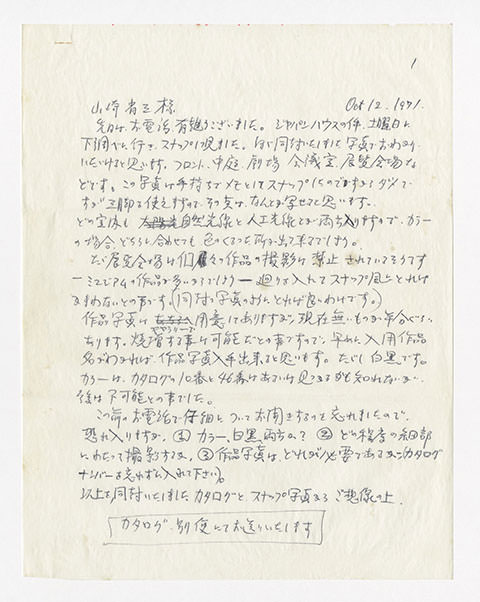 1
山崎省三様 Oct 12. 1971.
先日はお電話有難うございました。ジャパンハウスの件、土曜日に
下調べに行き、スナップして来ました。同封いたしました写真でおわかり
いただけると思います。フロント、中庭、劇場、会議室、展覧会場など
などです。この写真は手持ちでメモとしてスナップしたので
すが三脚も使えますので、その点はなんとか写せると思います。
どの室にも 自然光線と人工光線とが両方入りますので、カラー
の場合、どちらに合わせても色のくるった所が出て来るでしょう。
ただ展覧会場は個々の作品の撮影は禁止されているそうです
ーミュージアムの作品が多いからでしょうー 廻りを入れてスナップ風にとれば
かまわないとの事です。(同封の写真のようにとれば良いわけです。)
作品写真は 用意してありますが、現在無いものが年合ぐらい
あります。焼増する事は可能だとの事ですので、早めに入用作品
名がわかれば、作品写真入手出来ると思います。ただし白黒です。
カラーは、カタログの10番と46番は出ていれば見つかるかも知れないが、
後は不可能との事でした。
この前のお電話で仔細についてお聞きするのを忘れましたので、
恐れ入りますが、① カラー、白黒、両方か? ② どの程度の細部
にわたって撮影するか、③ 作品写真は、どれが必要であるか(カタログ
ナンバーを忘れずに入れて下さい)。
以上を同封いたしましたカタログと、スナップ写真から ご想像の上、
カタログ 別便にてお送りいたします